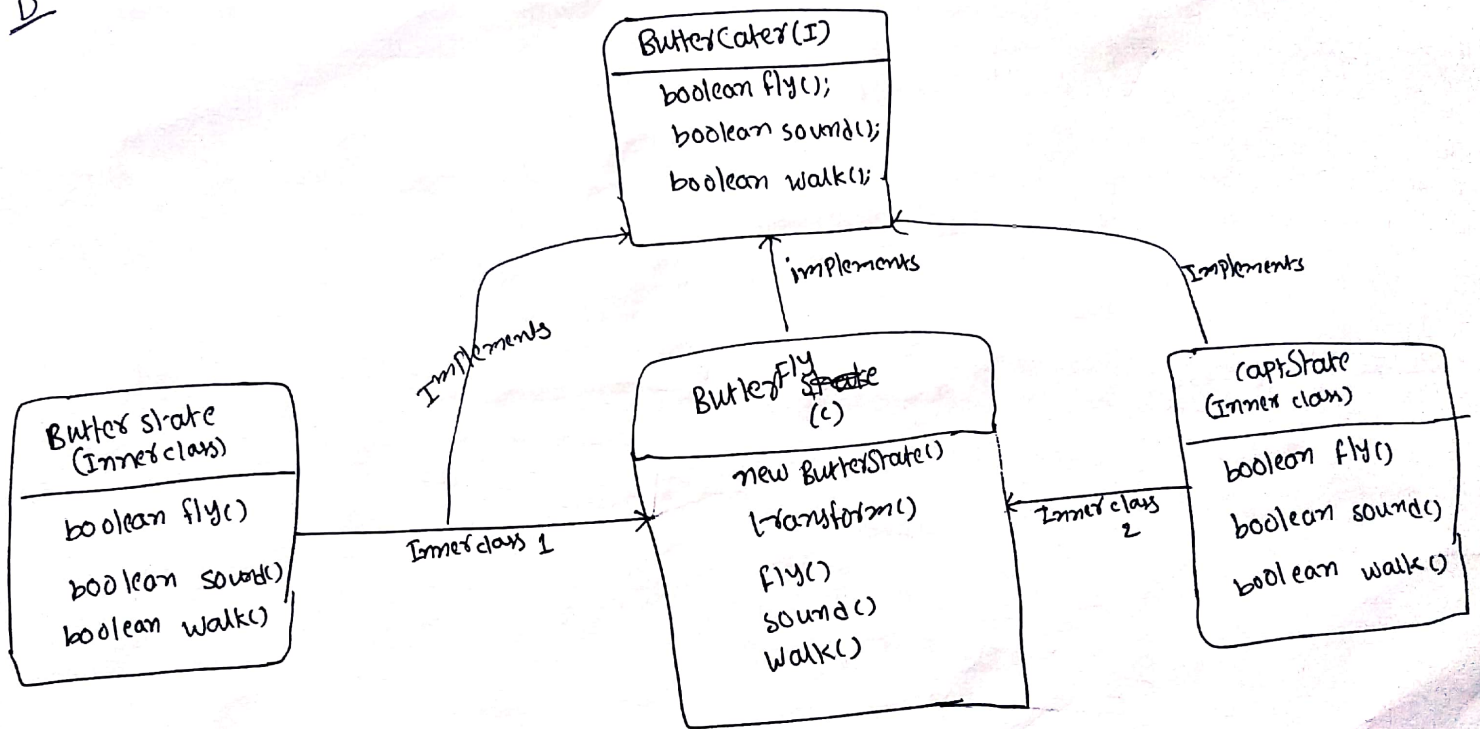 D
ButterCater(I)
boolean fly();
boolean sound();
boolean walk();
Implements
implements
Implements
Butter state
(Inner class)
boolean fly()
boolean sound()
boolean walk()
Inner class 1
ButterFly
(C)
new ButterState()
transform()
fly()
sound()
walk()
Inner class
2
CaptState
(Inner class)
boolean fly()
boolean sound()
boolean walk()